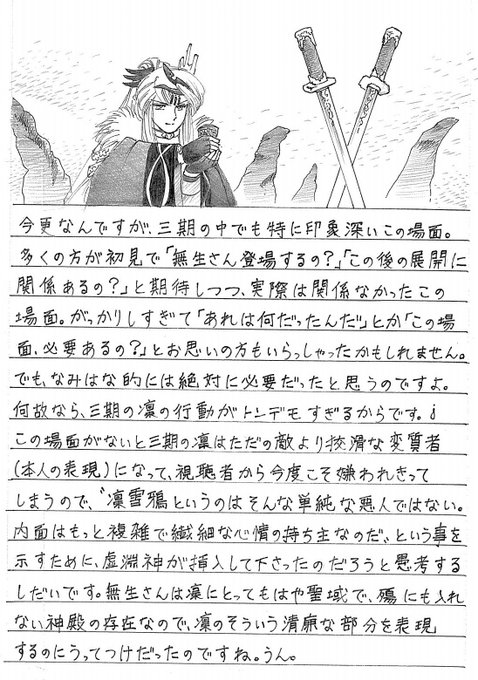 今更なんですが、三期の中でも特に印象深いこの場面。
多くの方が初見で「無生さん登場するの?」「この後の展開に
関係あるの?」と期待しつつ、実際は関係なかったこの
場面。がっかりしすぎて「あれは何だったんだ」とか「この場
面、必要あるの?」とお思いの方もいらっしゃったかもしれません。
でも、なみはな的には絶対に必要だったと思うのですよ。
何故なら、三期の凛の行動がトンデモすぎるからです。i
この場面がないと三期の凛はただの敵より狡滑な変質者
(本人の表現)になって、視聴者から今度こそ嫌われきって
しまうので、〝凛雪鴉というのはそんな単純な悪人ではない。
内面はもっと複雑で繊細な心情の持ち主なのだ〟という事を
示すために、虚淵神が挿入して下さったのだろうと思考する
しだいです。無生さんは凛にとってもはや聖域で、殤にも入れ
ない神殿の存在なので、凛のそういう清廉な部分を表現
するのにうってつけだったのですね。うん。